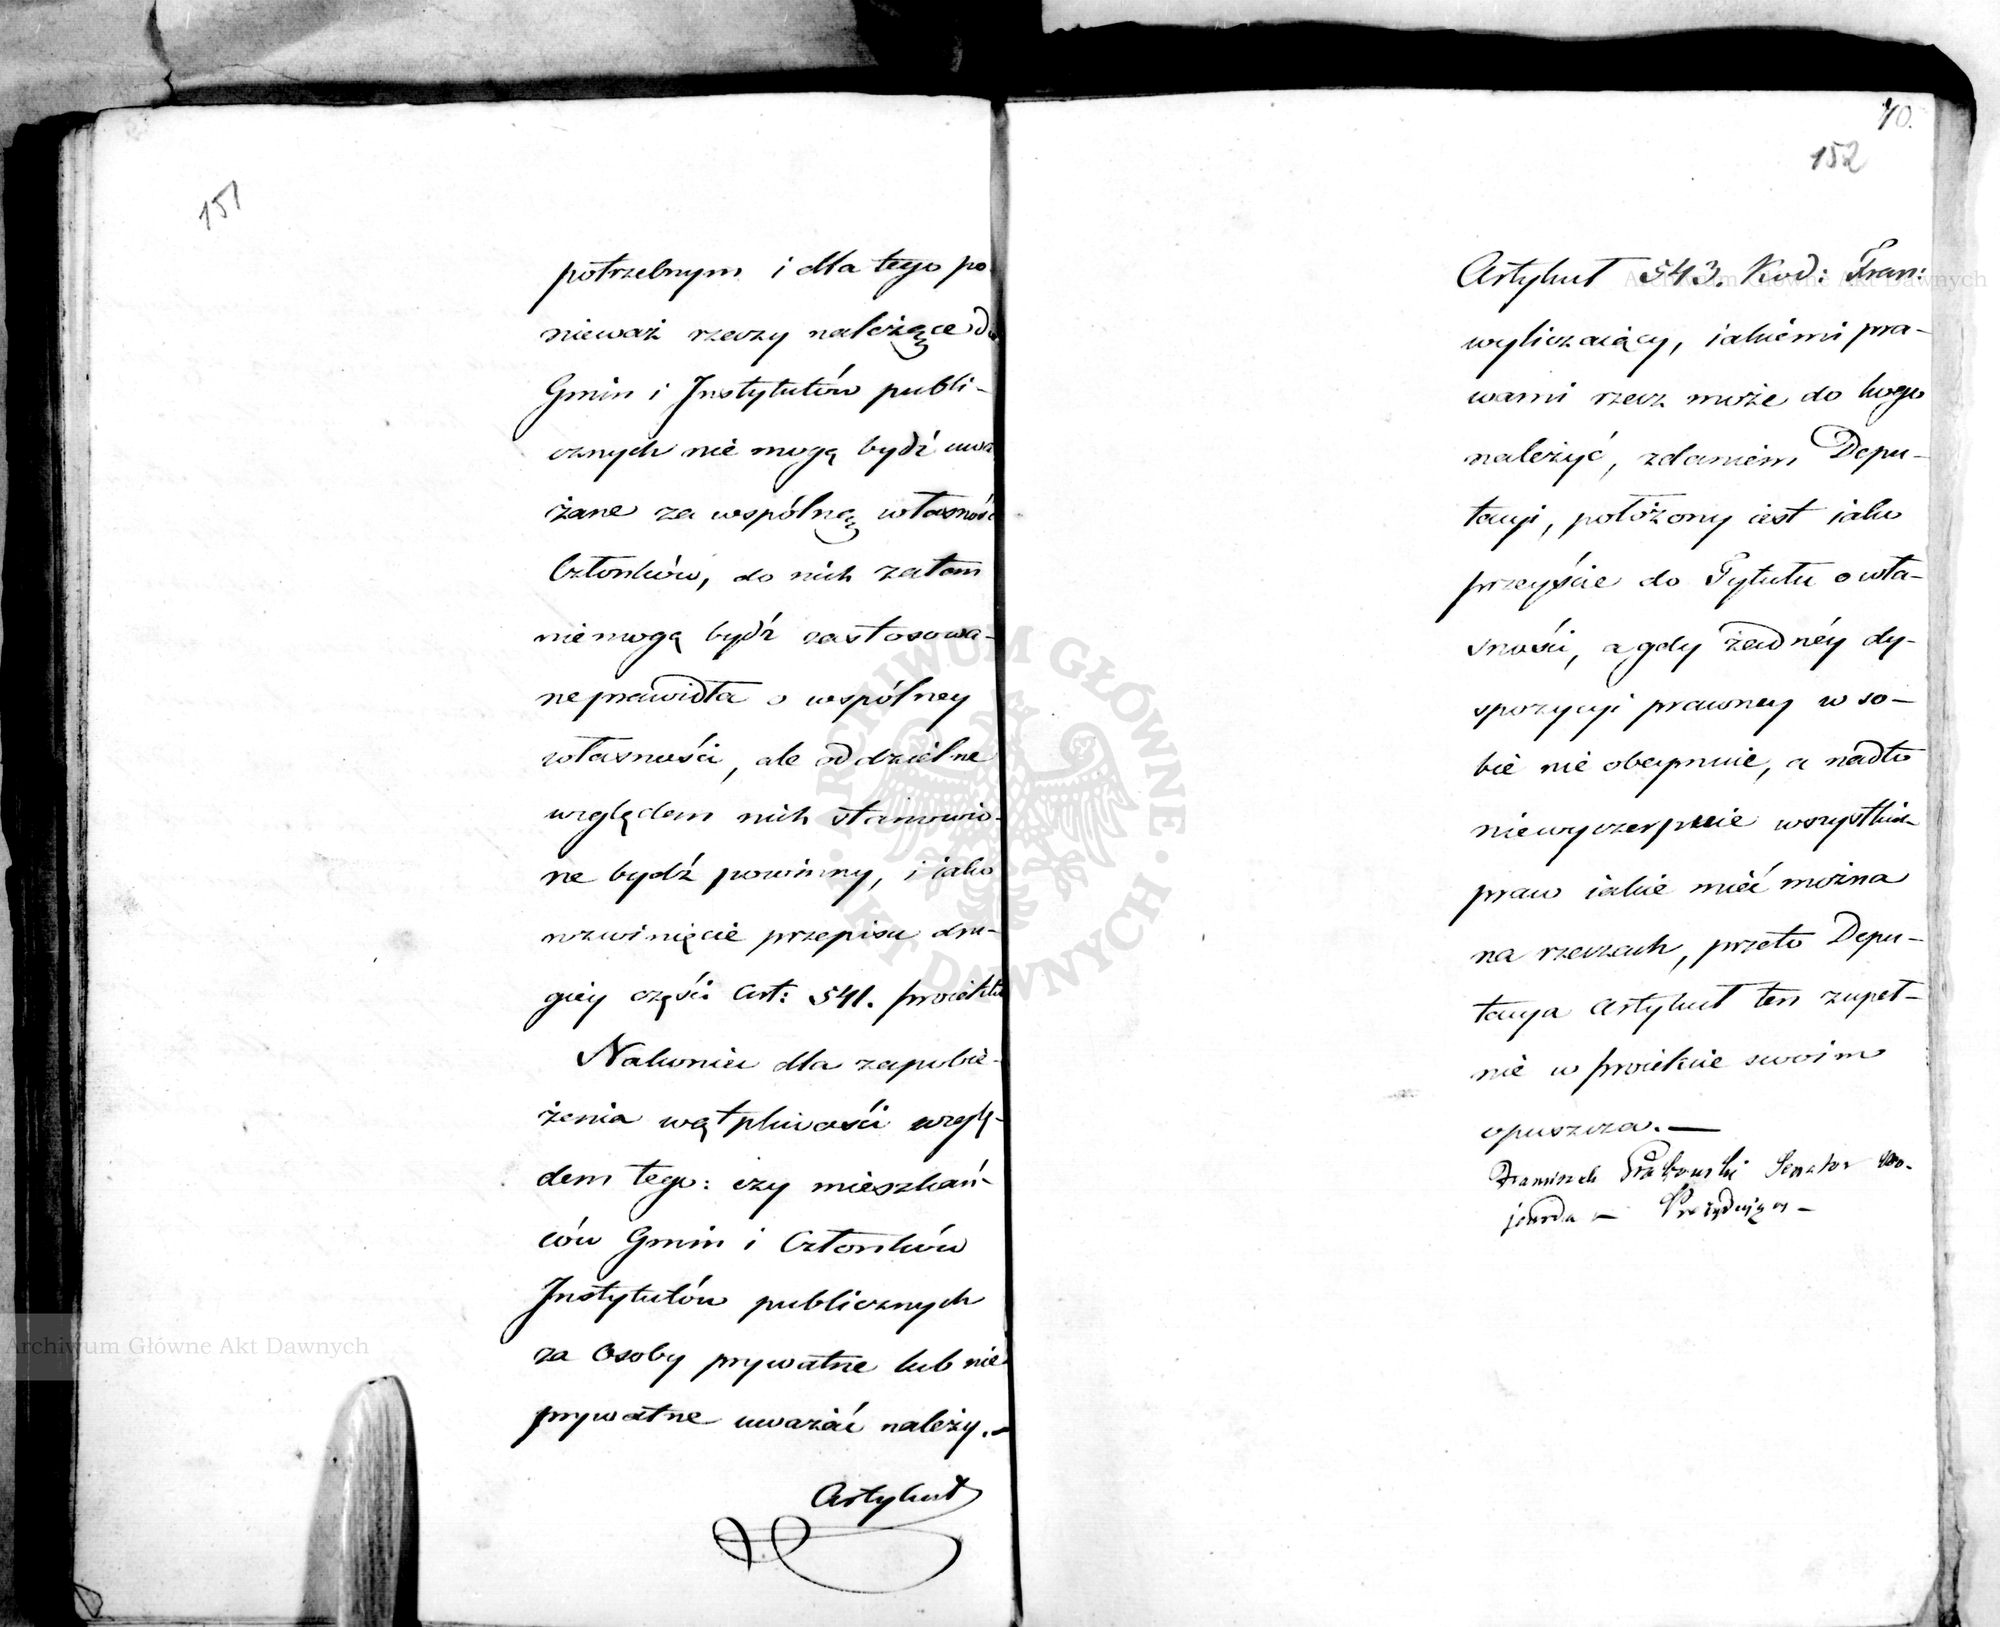 151
potrzebnym i dla tego po-
nieważ rzeczy należące do
Gmin i Instytutów publi-
cznych nie mogą bydź uwa-
żane za wspólną własność
Członków, do nich zatem
nie mogą bydź zastosowa-
ne prawidła o wspólney
własności, ale oddzielne
względem nich stanowio-
ne bydź powinny, i iako
rozwinięcie przepisu dru-
giey części Art: 541. proiektu
Nakoniec dla zapobie-
żenia wątpliwości wzglę-
dem tego: czy mieszkań-
ców Gmin i Członków
Instytutów publicznych
za Osoby prywatne lub nie
prywatne uważać należy.—
Artykuł
70.
152
Artykuł 543. Kod: Fran:
wyliczaiący, iakiemi pra-
wami rzecz może do kogo
należyć, zdaniem Depu-
tacyi, położony iest iako
przeyście do Tytułu o wła-
sności, a gdy żadnéy dy-
spozycyi prawney w so-
bie nie obeymuie, a nadto
niewyczerpuie wszystkich
praw iakie mieć można
na rzeczach, przeto Depu-
tacya Artykuł ten zupeł-
nie w proiekcie swoim
opuszcza.—
Franciszek Grabowski Senator Wo-
jewoda — Prezyduiący —
Archiwum Główne Akt Dawnych
Archiwum Główne Akt Dawnych
ARCHIWUM GŁÓWNE · AKT DAWNYCH ·